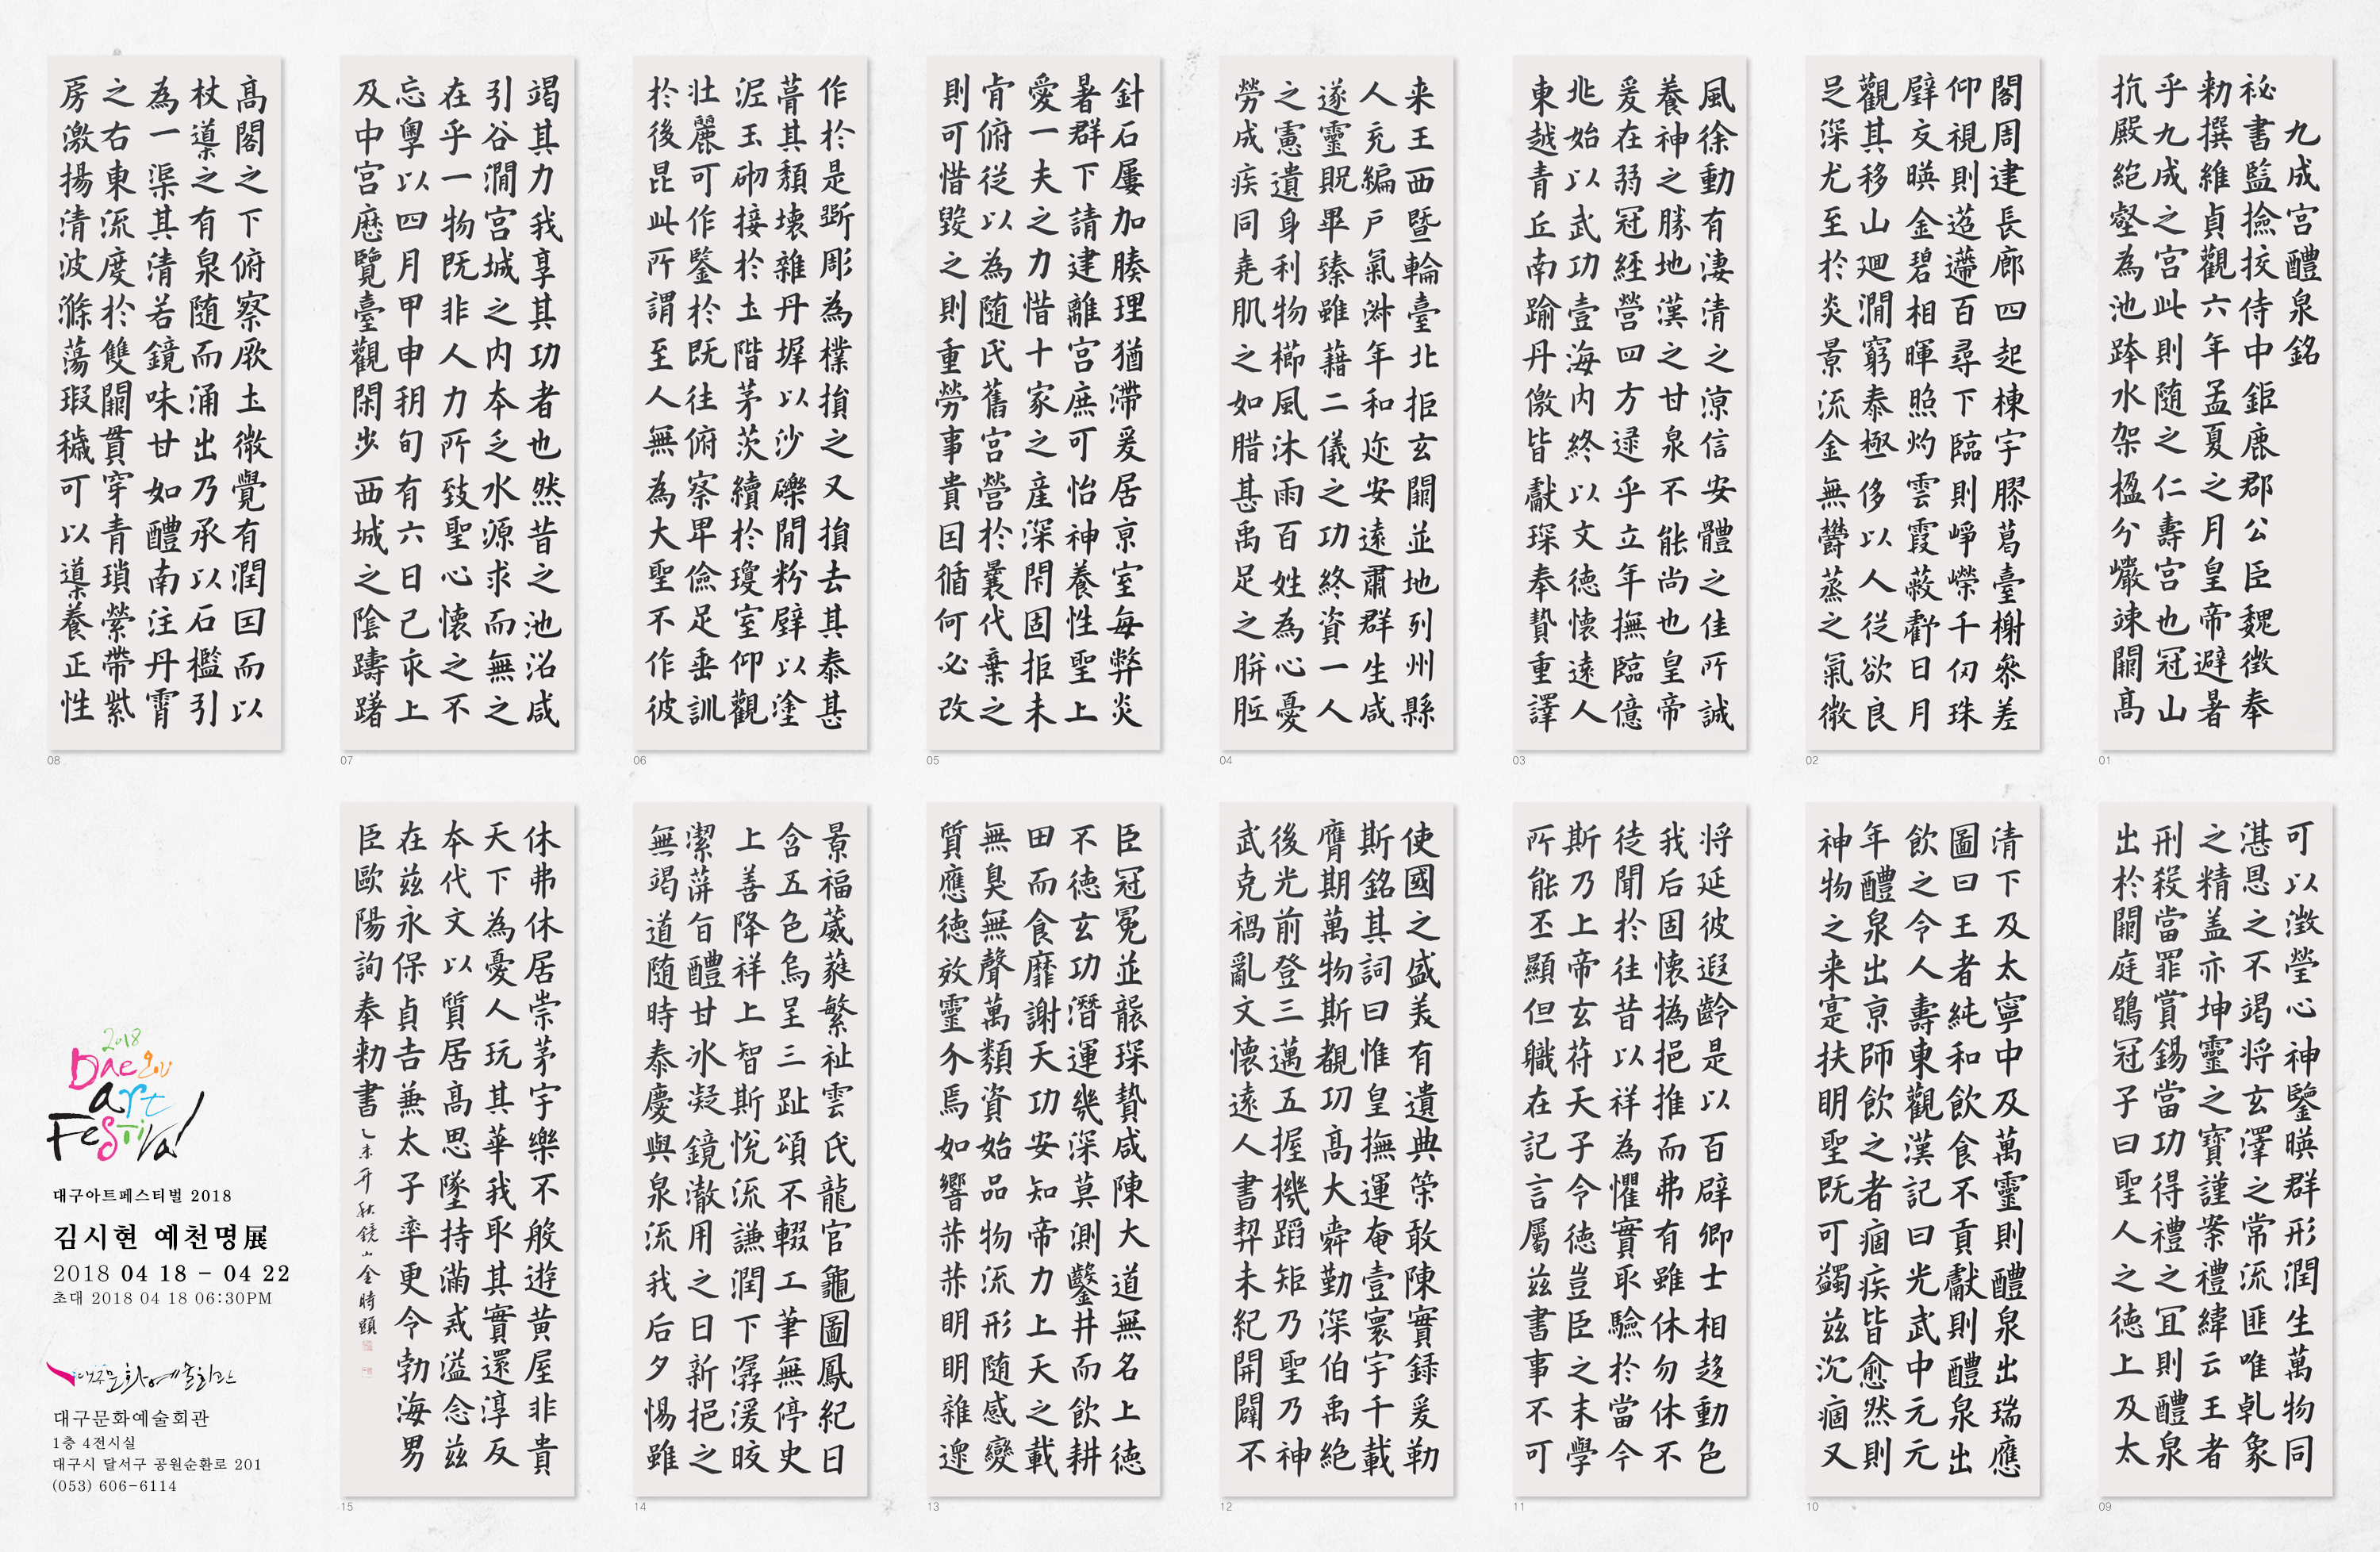 九成宮醴泉銘
秘書監撿挍侍中鉅鹿郡公臣魏徵奉
勅撰維貞觀六年孟夏之月皇帝避暑
乎九成之宮此則随之仁壽宮也冠山
抗殿絕壑為池跨水架楹分巖竦闕高
01
閣周建長廊四起棟宇膠葛臺榭參差
仰視則迢遰百尋下臨則崢嶸千仞珠
璧交暎金碧相暉照灼雲霞蔽虧日月
觀其移山廻澗窮泰極侈以人從欲良
足深尤至於炎景流金無欝蒸之氣微
02
風徐動有淒清之涼信安體之佳所誠
養神之勝地漢之甘泉不能尚也皇帝
爰在弱冠經營四方逮乎立年撫臨億
兆始以武功壹海內終以文德懷遠人
東越青丘南踰丹儌皆獻琛奉贄重譯
03
来王西暨輪臺北拒玄闕並地列州縣
人充編戶氣淋年和迩安遠肅群生咸
遂靈貺畢臻雖藉二儀之功終資一人
之慮遺身利物櫛風沐雨百姓為心憂
勞成疾同堯肌之如腊甚禹足之胼胝
04
針石屢加腠理猶滯爰居京室每弊炎
暑群下請建離宮庶可怡神養性聖上
愛一夫之力惜十家之產深閇固拒未
肯俯從以為随氏舊宮營於曩代棄之
則可惜毀之則重勞事貴因循何必改
05
作於是斲彫為樸損之又損去其泰甚
葺其頹壞雜丹墀以沙礫間粉壁以塗
泥玉砌接於土階茅茨續於瓊室仰觀
壯麗可作鑒於既往俯察卑儉足垂訓
於後昆此所謂至人無為大聖不作彼
06
竭其力我享其功者也然昔之池沼咸
引谷澗宮城之內本乏水源求而無之
在乎一物既非人力所致聖心懷之不
忘粵以四月甲申朔旬有六日己亥上
及中宮歷覽臺觀閑步西城之陰躊躇
07
高閣之下俯察厥土微覺有潤因而以
杖導之有泉随而涌出乃承以石檻引
為一渠其清若鏡味甘如醴南注丹霄
之右東流度於雙闕貫穿青瑣縈帶紫
房激揚清波滌蕩瑕穢可以導養正性
08
可以澂瑩心神鑒暎群形潤生萬物同
湛恩之不竭将玄澤之常流匪唯乹象
之精盖亦坤靈之寶謹案禮緯云王者
刑殺當罪賞錫當功得禮之宜則醴泉
出於闕庭鶡冠子曰聖人之德上及太
09
清下及太寧中及萬靈則醴泉出瑞應
圖曰王者純和飲食不貢獻則醴泉出
飲之令人壽東觀漢記曰光武中元元
年醴泉出京師飲之者痼疾皆愈然則
神物之来寔扶明聖既可蠲茲沉痼又
10
将延彼遐齡是以百辟卿士相趍動色
我后固懷撝挹推而弗有雖休勿休不
徒聞於往昔以祥為懼實取驗於當今
斯乃上帝玄符天子令德豈臣之末學
所能丕顯但職在記言屬茲書事不可
11
使國之盛美有遺典策敢陳實録爰勒
斯銘其詞曰惟皇撫運奄壹寰宇千載
膺期萬物斯覩功高大舜勤深伯禹絕
後光前登三邁五握機蹈矩乃聖乃神
武克禍亂文懷遠人書契未紀開闢不
12
臣冠冕並襲琛贄咸陳大道無名上德
不德玄功潛運幾深莫測鑿井而飲耕
田而食靡謝天功安知帝力上天之載
無臭無聲萬類資始品物流形随感變
質應德效靈介焉如響赫赫明明雜遝
13
景福葳蕤繁祉雲氏龍官龜圖鳳紀日
含五色烏呈三趾頌不輟工筆無停史
上善降祥上智斯悅流謙潤下潺湲皎
潔蓱旨醴甘冰凝鏡澈用之日新挹之
無竭道随時泰慶與泉流我后夕惕雖
14
休弗休居崇茅宇樂不般遊黃屋非貴
天下為憂人玩其華我取其實還淳反
本代文以質居高思墜持滿戒溢念茲
在茲永保貞吉兼太子率更令勃海男
臣歐陽詢奉勅書 乙未开秋鏡山金時顯
15
2018
Daegu
art
Festival
대구아트페스티벌 2018
김시현 예천명展
2018 04 18 - 04 22
초대 2018 04 18 06:30PM
대구문화예술회관
대구문화예술회관
1층 4전시실
대구시 달서구 공원순환로 201
(053) 606-6114